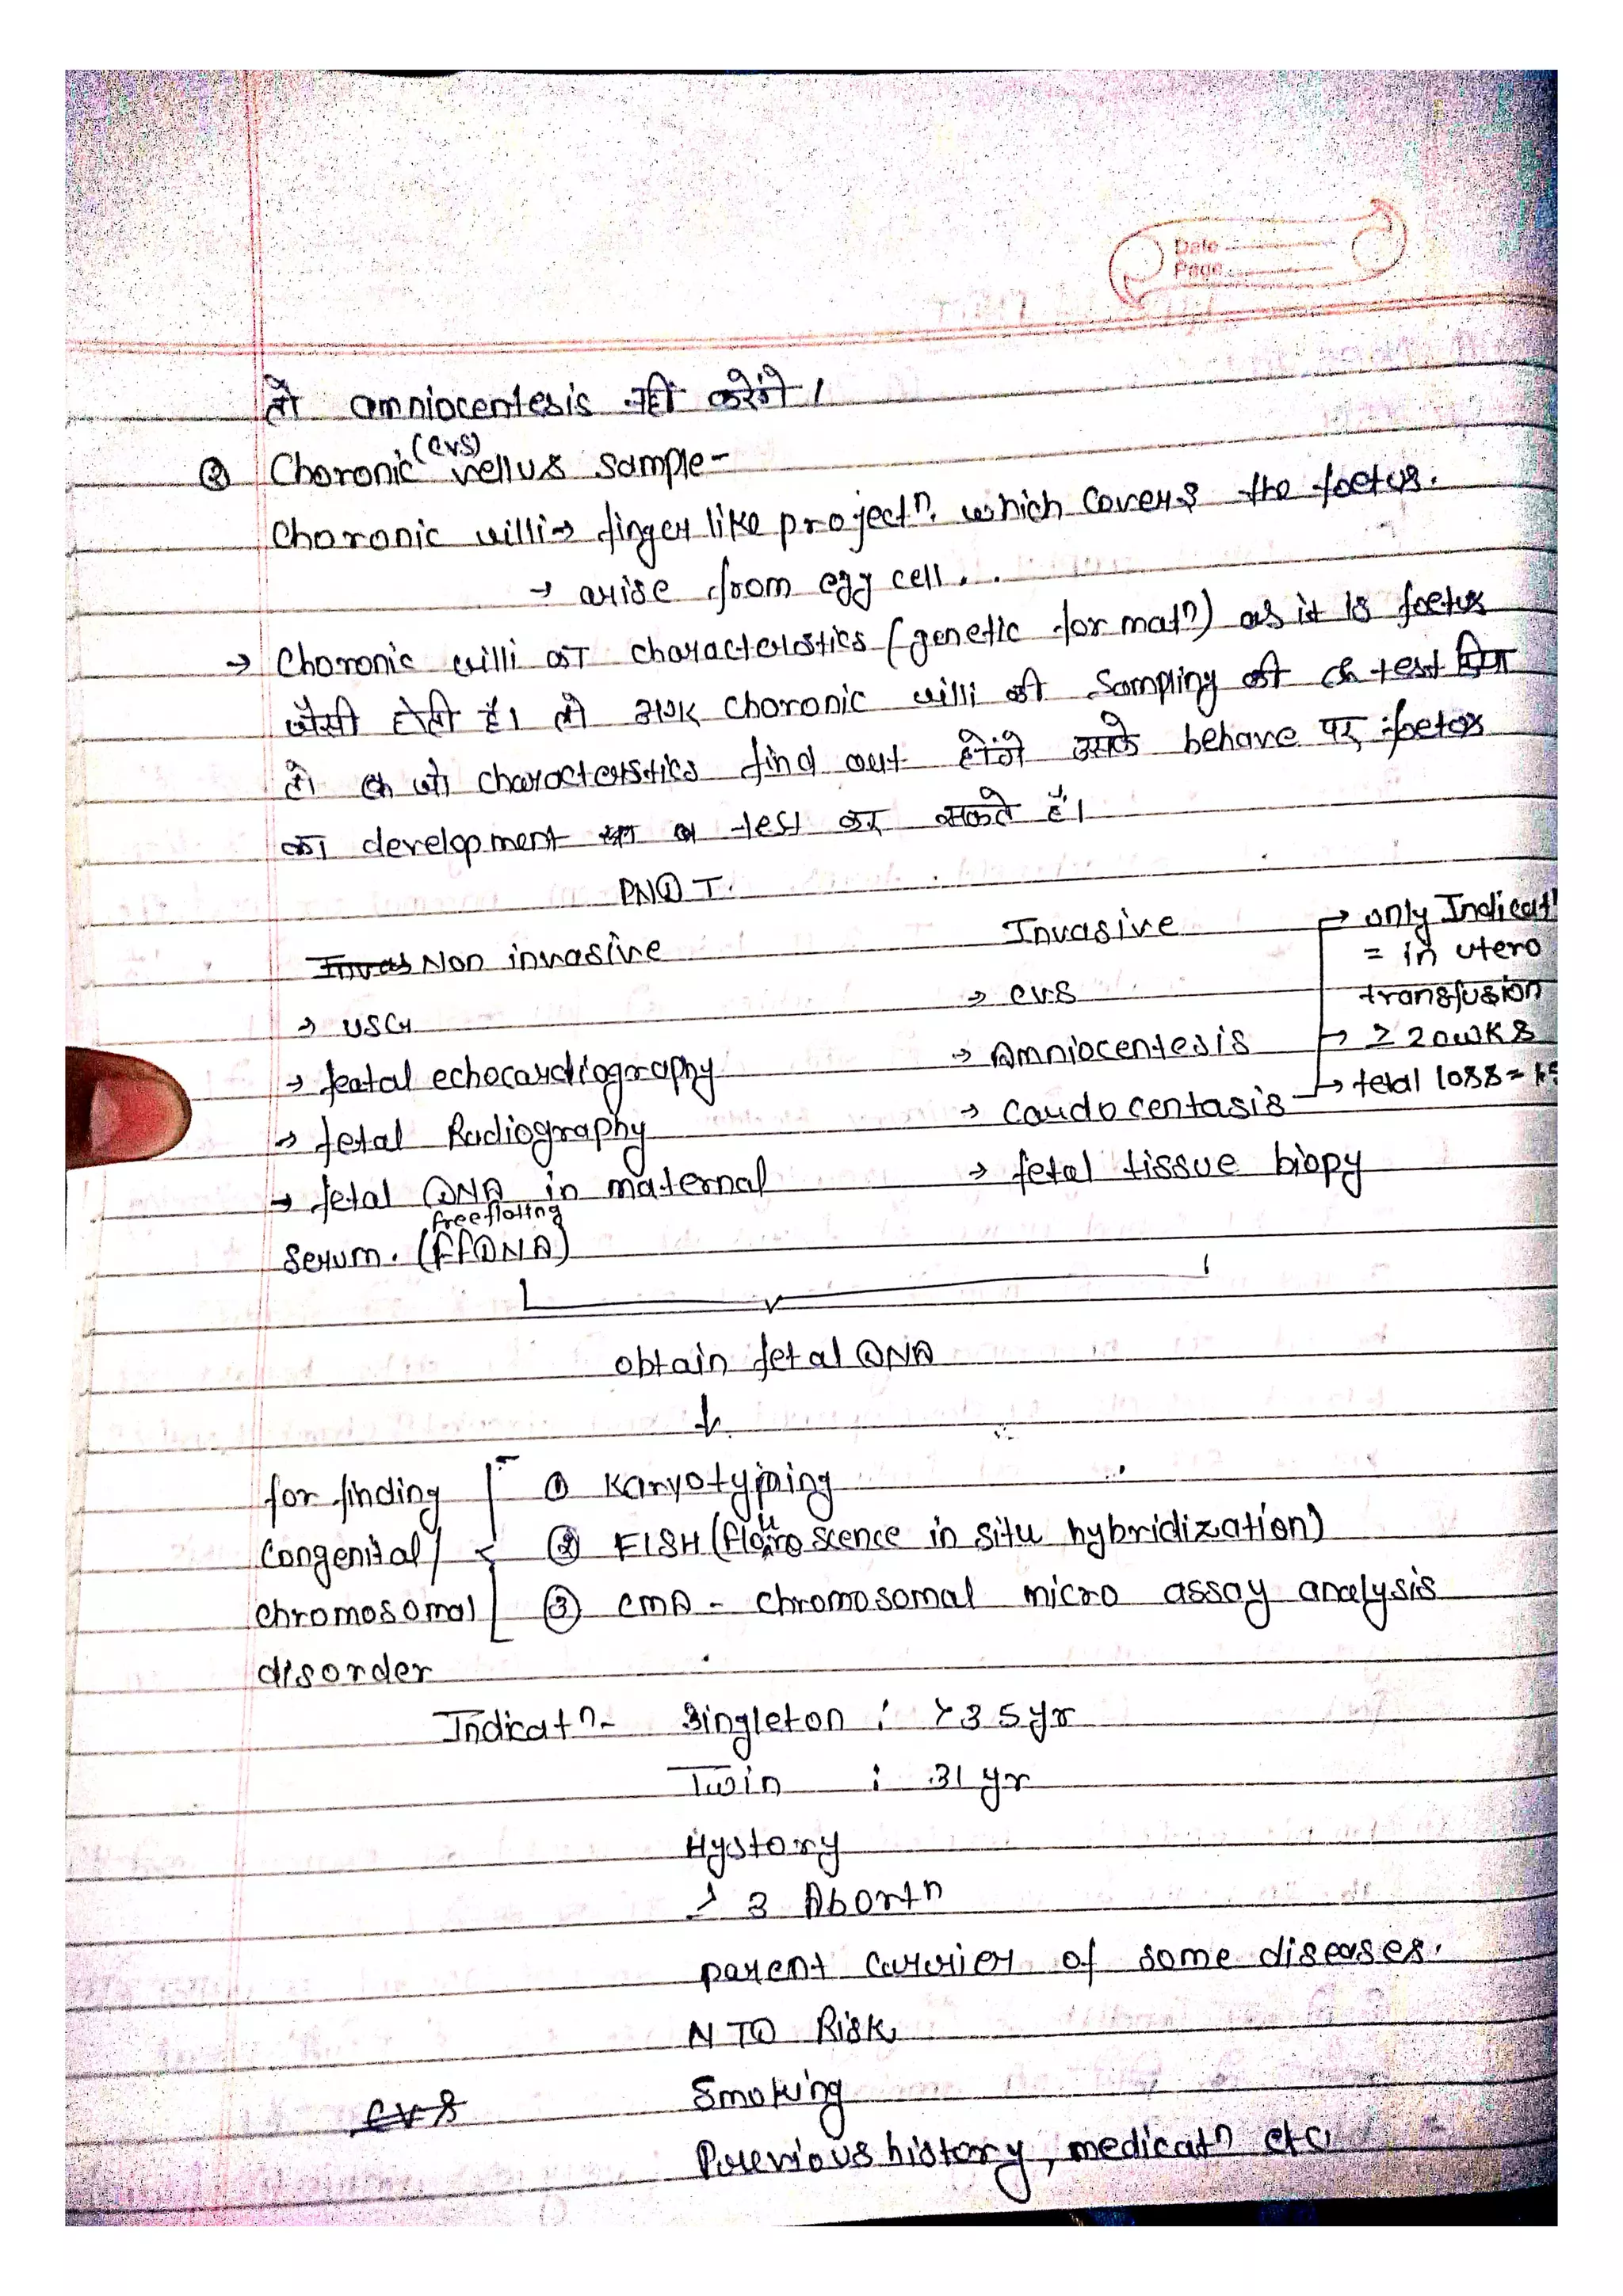 Date
Page
तो amniocentesis नहीं करेंगे।
② Choronic (CVS) vellus sample-
Choronic villi → finger like projectn. which covers the foetus.
→ arise from egg cell..
→ Choronic villi का characterlstics (genetic formatn) as it is foetus
जैसी होती है। तो अगर choronic villi की Sampling की test किया
तो जो characterstics find out होंगे उसके behave पर foetus
का development का test कर सकते हैं।
PNDT.
Non invasive
Invasive
→ USG
→ featal echocardiography
→ fetal Radiography
→ fetal DNA in maternal
Serum. (ffDNA)
freeflotng
→ CVS
→ Amniocentesis
→ Caudocentasis
→ fetal tissue biopy
→ only Indicatn
= in utero
transfusion
→ ≥ 20wks
→ fetal loss =
obtain fetal DNA
for finding
Congenital/
chromosomal
disorder
① Karyotyping
② FISH ( in situ hybridization)
③ CMA - chromosomal micro assay analysis
Indicatn- Singleton : >35yr
Twin : 31 yr
Hystory
≥ 3 Abortn
parent carrier of some diseases.
NTD Risk
CVS
Smoking
Previous history, medicatn etc.